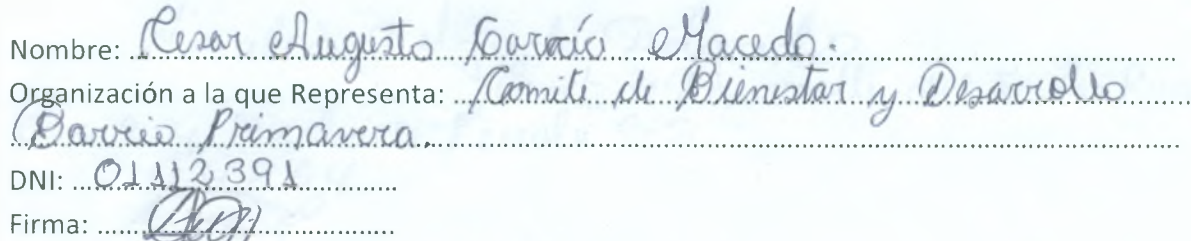 Nombre: Cesar Augusto Garcia Macedo.
Organización a la que Representa: Comite de Bienestar y Desarrollo
Barrio Primavera.
DNI: 01112391
Firma: